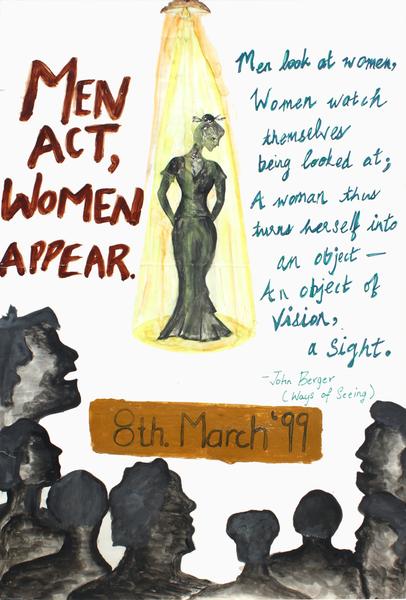 MEN
ACT,
WOMEN
APPEAR.
Men look at women,
Women watch
themselves
being looked at;
A woman thus
turns herself into
an object —
An object of
vision,
a sight.
- John Berger
(Ways of Seeing)
8th. March '99